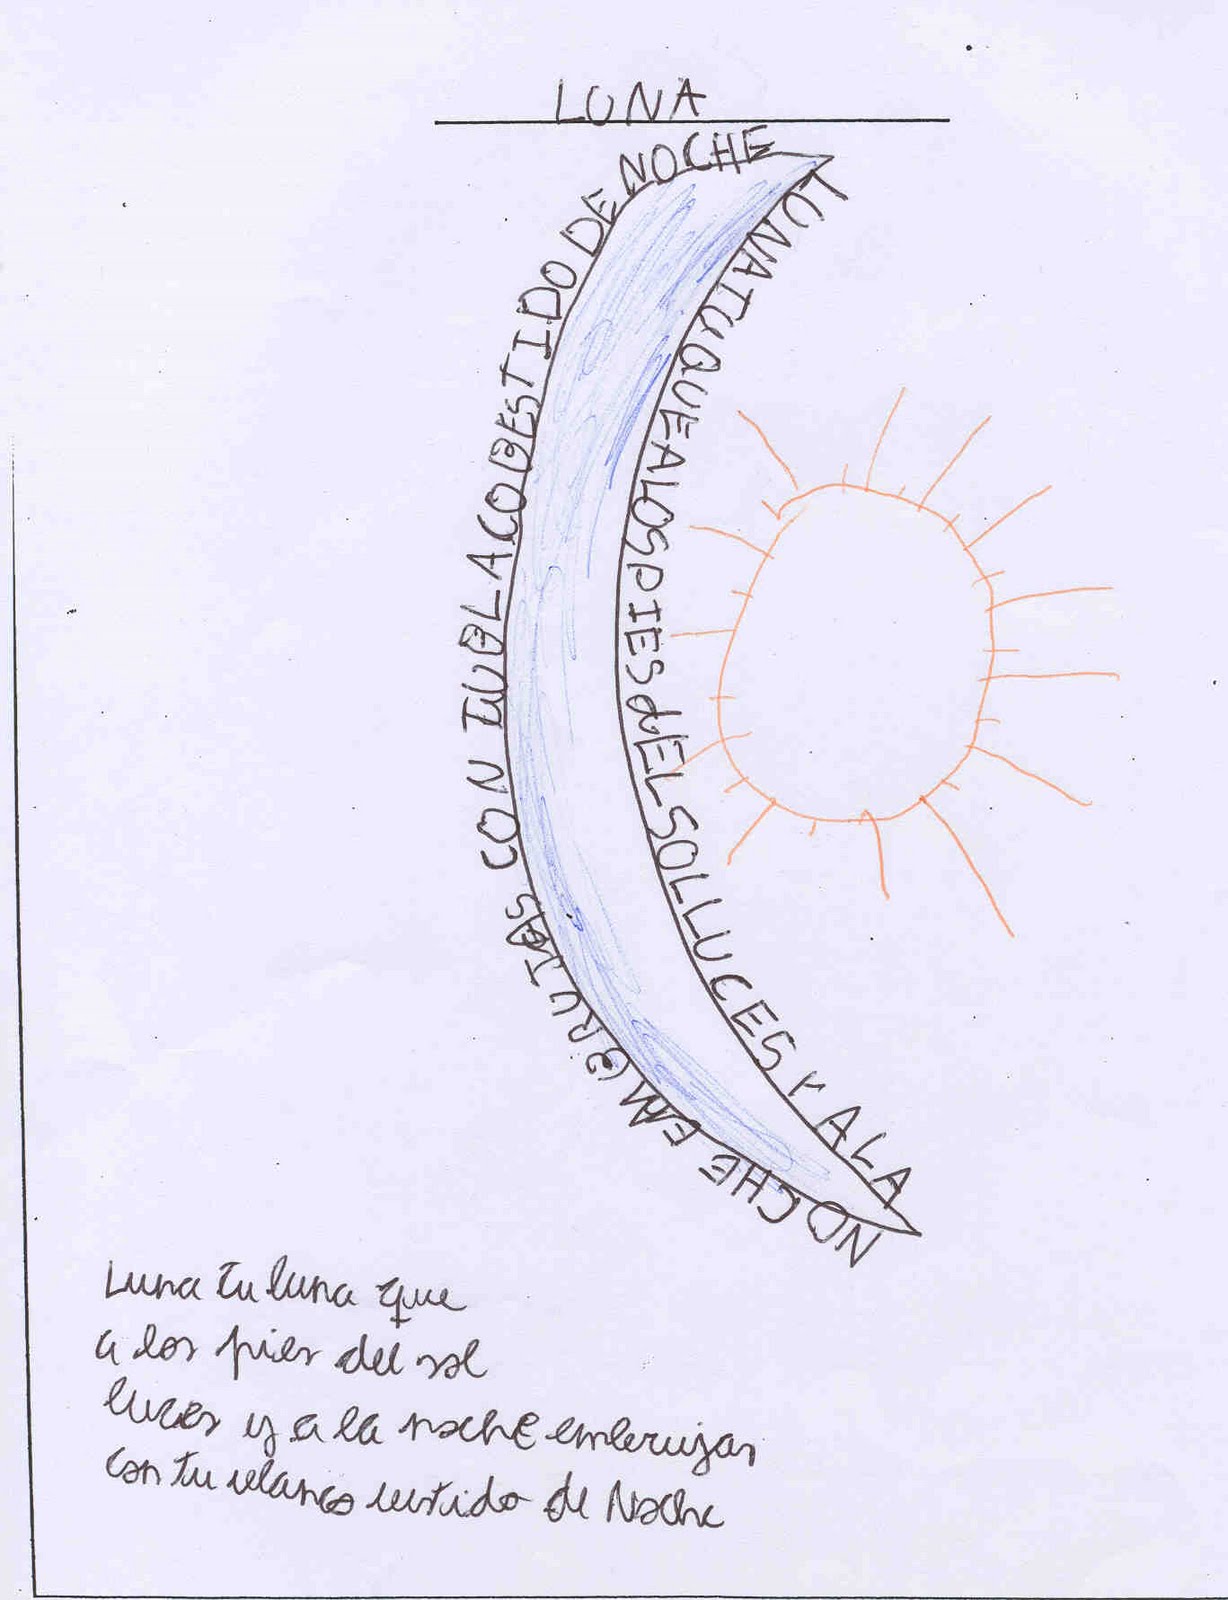 LUNA
LUNA TU QUE A LOS PIES dEL SOL LUCES Y A LA
NOCHE EMBRUJAS CON TU BLACO BESTIDO DE NOCHE
Luna tu luna que
a los pies del sol
luces y a la nochE embrujas
con tu blanco vestido de Noche